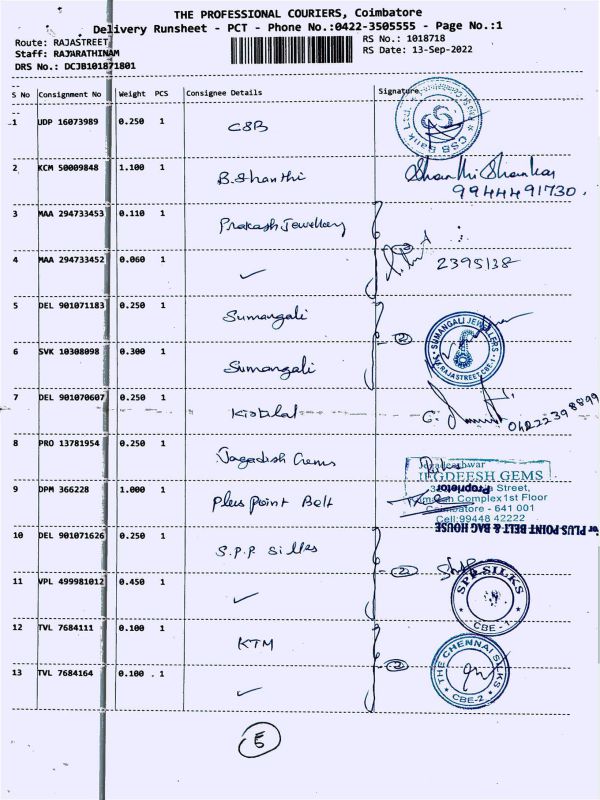 THE PROFESSIONAL COURIERS, Coimbatore
Delivery Runsheet - PCT - Phone No.:0422-3505555 - Page No.:1
Route: RAJASTREET
RS No.: 1018718
Staff: RAJARATHINAM
RS Date: 13-Sep-2022
DRS No.: DCJB101871801
S No Consignment No Weight PCS Consignee Details Signature
1 UDP 16073989 0.250 1 CSB
CSB Bank Ltd.
2 KCM 50009848 1.100 1 B.Shanthi Shanthi Shankar
9944491730.
3 MAA 294733453 0.110 1 Prakash Jewellery
4 MAA 294733452 0.060 1 ✓ 2395138
5 DEL 901071183 0.250 1 Sumangali 2
SUMANGALI JEWELLERS
RAJASTREET, CBE-1
6 SVK 10308098 0.300 1 Sumangali
7 DEL 901070607 0.250 1 04222398899
8 PRO 13781954 0.250 1 Jagadish Gems
JEGDEESH GEMS
Proprietor
Street,
Complex 1st Floor
Coimbatore - 641 001
Cell:99448 42222
9 DPM 366228 1.000 1 Plus Point Belt
PLUS POINT BELT & BAG HOUSE
10 DEL 901071626 0.250 1 S.P.P Silks 2
SPP SILKS
CBE - 1
11 VPL 499981012 0.450 1 ✓
12 TVL 7684111 0.100 1 KTM 2
THE CHENNAI SILKS
CBE-2
13 TVL 7684164 0.100 1 ✓